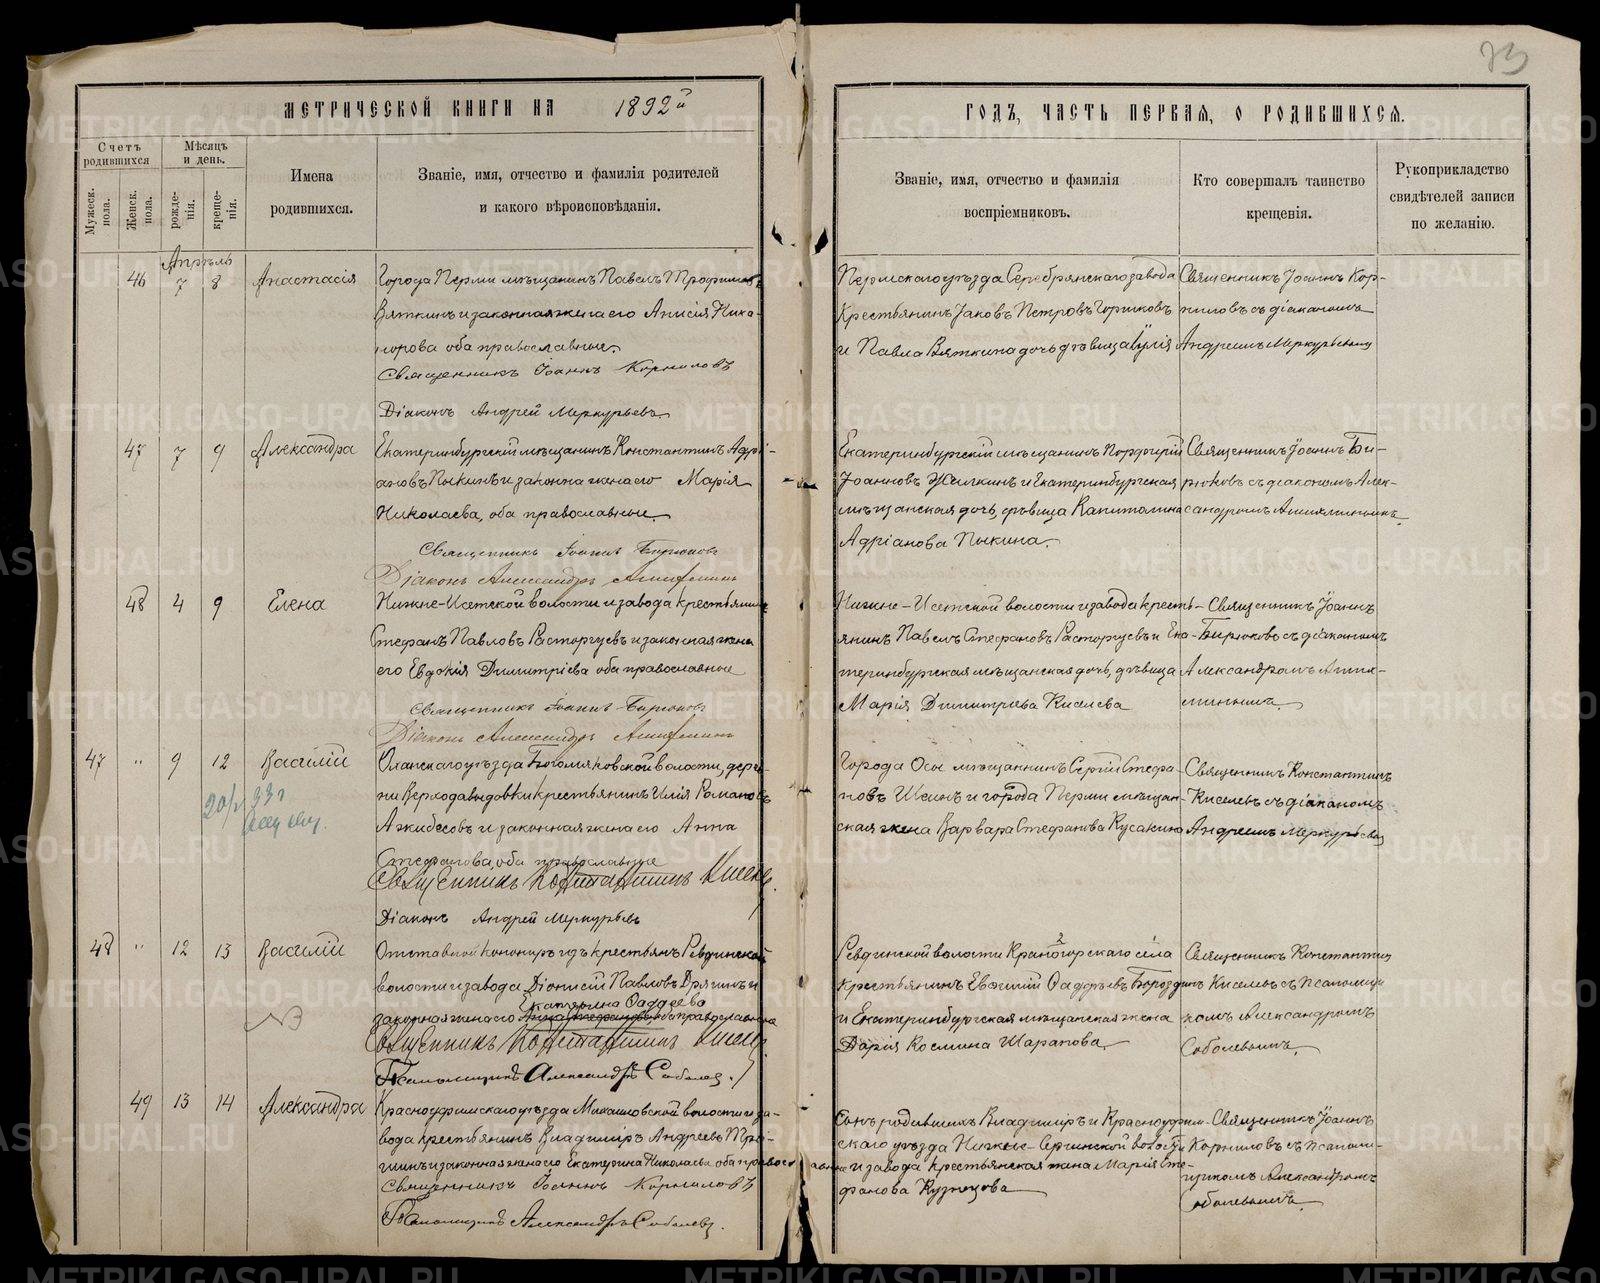 73
МЕТРИЧЕСКОЙ КНИГИ НА 1892й
Счетъ родившихся
Мѣсяцъ и день.
Мужеск. пола.
Женск. пола.
рожде-нія.
креще-нія.
Имена родившихся.
Званіе, имя, отчество и фамилія родителей
и какого вѣроисповѣданія.
Апрѣль
46 7 8 Анастасія
Города Перми мѣщанинъ Павелъ Трофимовъ
Вяткинъ и законная жена его Анисія Ника-
норова оба православные.
Священникъ Іоаннъ Корниловъ
Діаконъ Андрей Меркурьевъ
47 7 9 Александра
Екатеринбургскій мѣщанинъ Константинъ Адрі-
ановъ Пыкинъ и законна жена его Марія
Николаева, оба православные.
Священникъ Іоаннъ Бирюковъ
Діаконъ Александръ
48 4 9 Елена
Нижне-Исетской волости и завода крестьянинъ
Стефанъ Павловъ Расторгуевъ и законная жена
его Евдокія Димитріева оба православные
Священникъ Іоаннъ Бирюковъ
Діаконъ Александръ
47 " 9 12 Василій
Оханскаго уѣзда Богомяковской волости, дерев-
ни Верходавыдовки крестьянинъ Илія Романовъ
Ажибесовъ и законная жена его Анна
Стефанова, оба православные
Священникъ Константинъ Киселевъ.
Діаконъ Андрей Меркурьевъ
48 " 12 13 Василій
Отставной канониръ изъ крестьянъ Ревдинской
волости и завода Діонисій Павловъ Дрягинъ и
Екатерина Фаддеева
законная жена его Анна Стефановна, оба православные
Священникъ Константинъ Киселевъ.
Псаломщикъ Александръ Соболевъ.
49 13 14 Александра
Красноуфимскаго уѣзда Михаиловской волости и за-
вода крестьянинъ Владиміръ Андреевъ
и законная жена его Екатерина Николаева, оба православные
Священникъ Іоаннъ Корниловъ
Псаломщикъ Александръ Соболевъ.
ГОДЪ, ЧАСТЬ ПЕРВАЯ, О РОДИВШИХСЯ.
Званіе, имя, отчество и фамилія
воспріемниковъ.
Кто совершалъ таинство
крещенія.
Рукоприкладство
свидѣтелей записи
по желанію.
Пермскаго уѣзда Серебрянскаго завода
Крестьянинъ Іаковъ Петровъ Горшковъ
и Павла Вяткина дочь дѣвица Іулія
Священникъ Іоаннъ Кор-
ниловъ съ діакономъ
Андреемъ Меркурьевымъ
Екатеринбургскій мѣщанинъ Порфирій
Іоанновъ Жилкинъ и Екатеринбургская
мѣщанская дочь, дѣвица Капитолина
Адріанова Пыкина.
Священникъ Іоаннъ Би-
рюковъ съ діакономъ Алек-
сандромъ
Нижне-Исетской волости и завода кресть-
янинъ Павелъ Стефановъ Расторгуевъ и Ека-
теринбургская мѣщанская дочь, дѣвица
Марія Димитріева Киселева
Священникъ Іоаннъ
Бирюковъ съ діакономъ
Александромъ
Города Осы мѣщанинъ Сергій Стефа-
новъ Шеинъ и города Перми мѣщан-
ская жена Варвара Стефанова Кусакина
Священникъ Константинъ
Киселевъ съ діакономъ
Андреемъ Меркурьевымъ
Ревдинской волости Краногорскаго села
крестьянинъ Евгеній Фаддѣевъ Бороздинъ
и Екатеринбургская мѣщанская жена
Дарія Космина Шарапова
Священникъ Константинъ
Киселевъ съ псаломщи-
комъ Александромъ
Соболевымъ.
Сынъ родившихъ Владиміръ и Красноуфим-
скаго уѣзда Нижне-Сергинской волости
и завода крестьянская жена Марія Сте-
фанова Кузнецова
Священникъ Іоаннъ
Корниловъ съ псалом-
щикомъ Александромъ
Соболевымъ.
METRIKI.GASO-URAL.RU